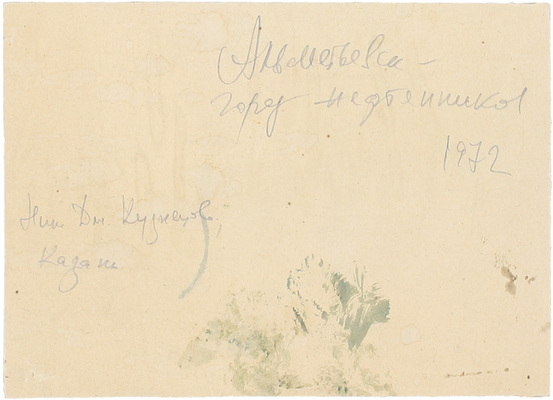 Альметьевск –
город нефтяников
1972
Ник. Дм. Кузнецов,
Казань